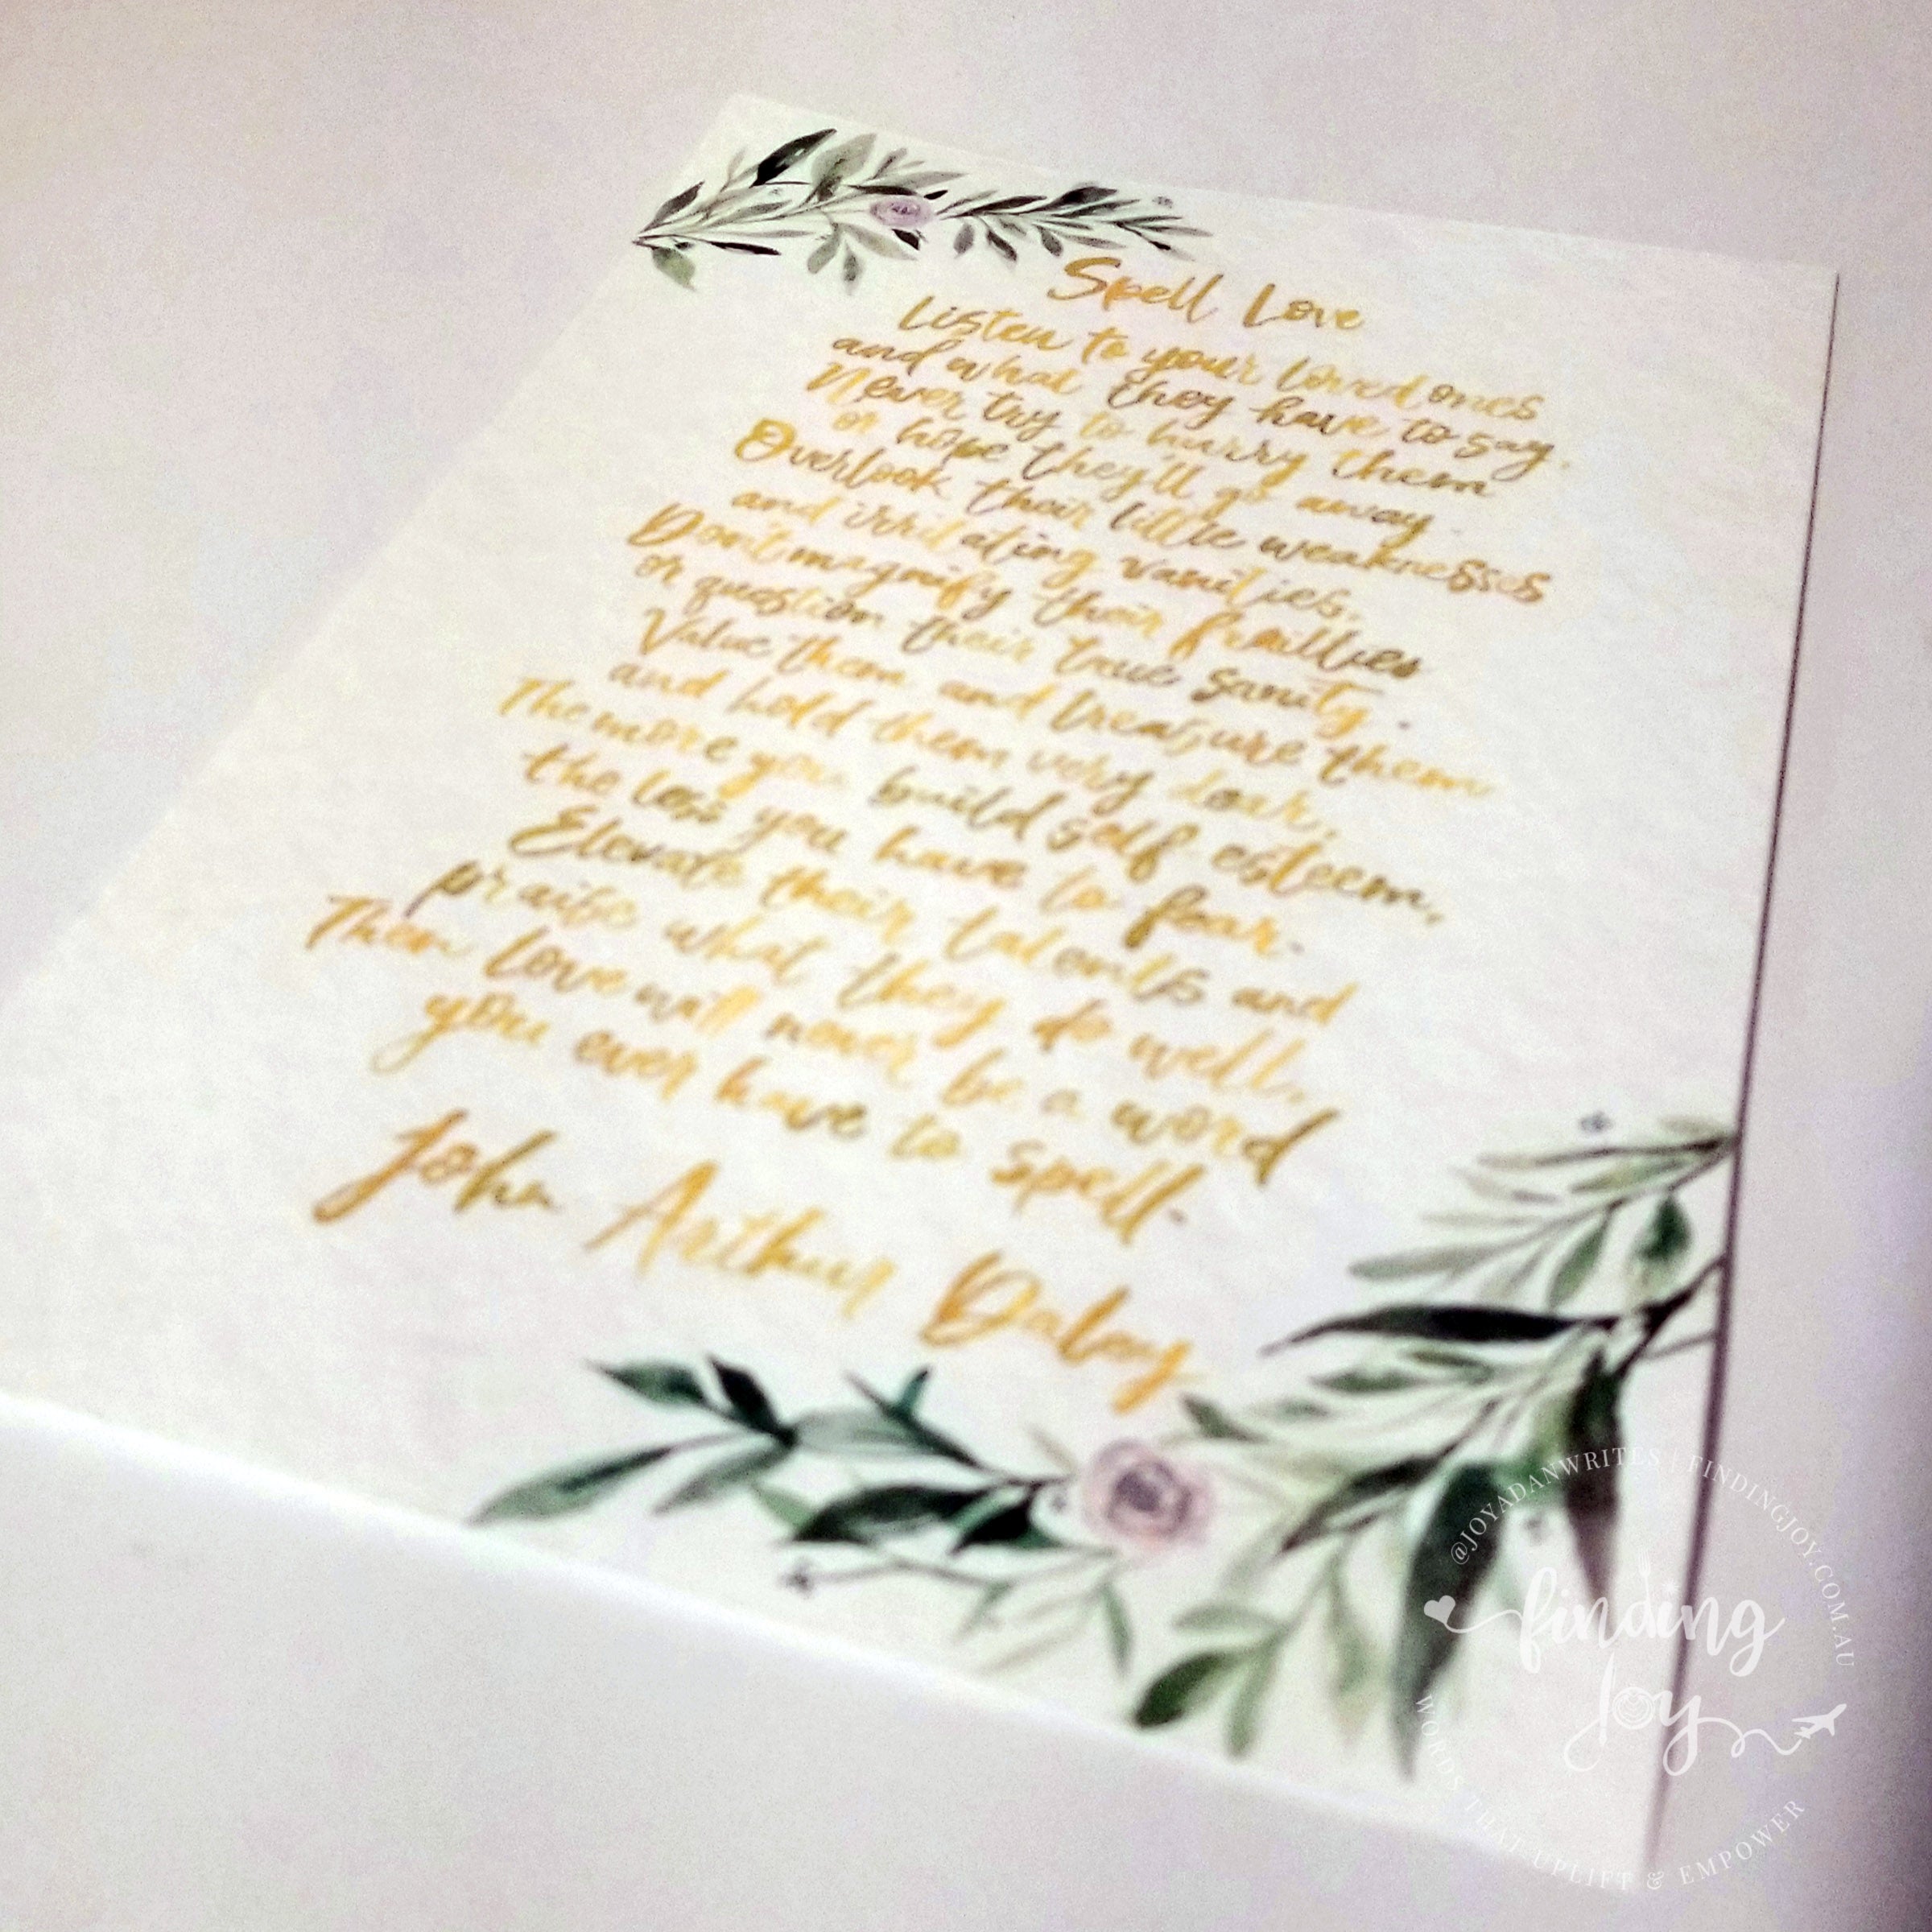 Spell Love
Listen to your loved ones
and what they have to say.
Never try to hurry them
or hope they'll go away.
Overlook their little weaknesses
and irritating vanities.
Don't magnify their frailties
or question their true sanity.
Value them and treasure them
and hold them very dear,
The more you build self esteem,
the less you have to fear.
Elevate their talents and
praise what they do well,
Then love will never be a word
you ever have to spell.
John Arthur Daley
@JOYADANWRITES | FINDINGJOY.COM.AU
finding
Joy
WORDS THAT UPLIFT & EMPOWER